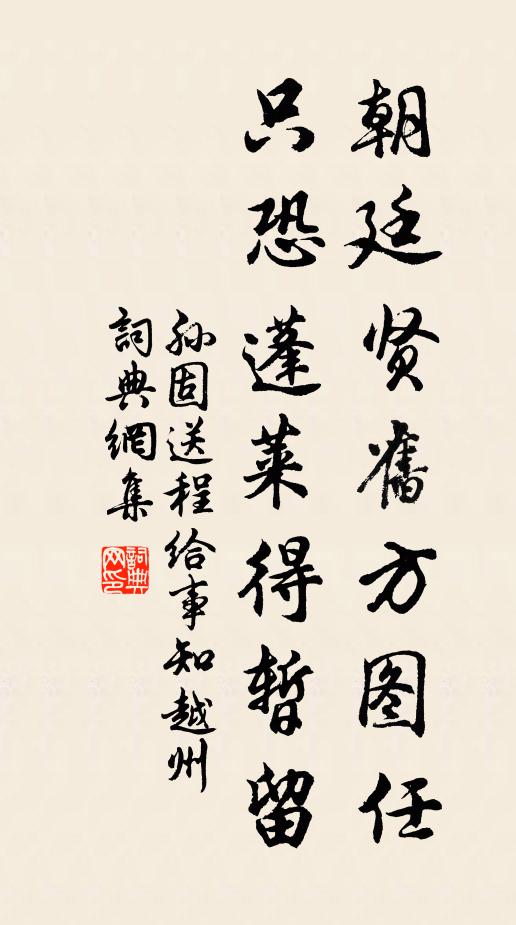 朝廷贤舊方图任
只恐蓬莱得暫留
孙固送程给事知越州
詞典網集
詞典网印